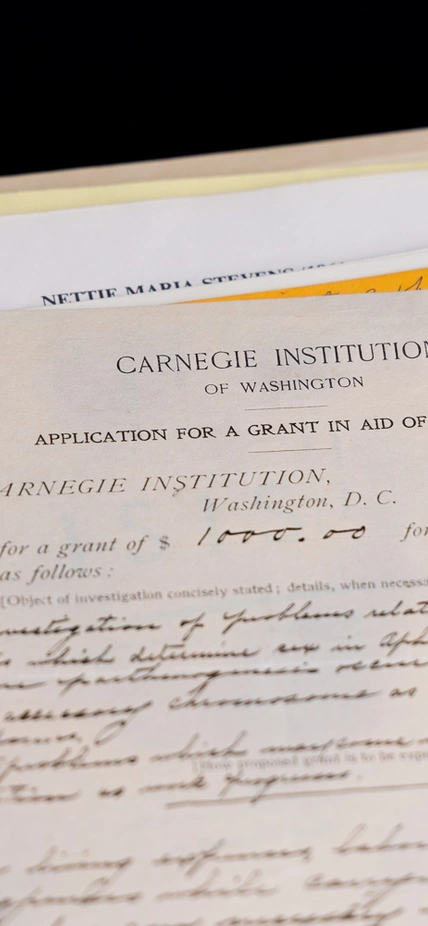 NETTIE MARIA STEVENS
CARNEGIE INSTITUTION
OF WASHINGTON
APPLICATION FOR A GRANT IN AID OF
ARNEGIE INSTITUTION,
Washington, D. C.
for a grant of $ 1000.00 for
as follows:
[Object of investigation concisely stated; details, when necessa
vestigation of problems relat
which determine sex in Aph
parthenogenesis occur
accessory chromosome as
problems which may come
tion as work progresses.
living expenses, labor
expenses while
necessary